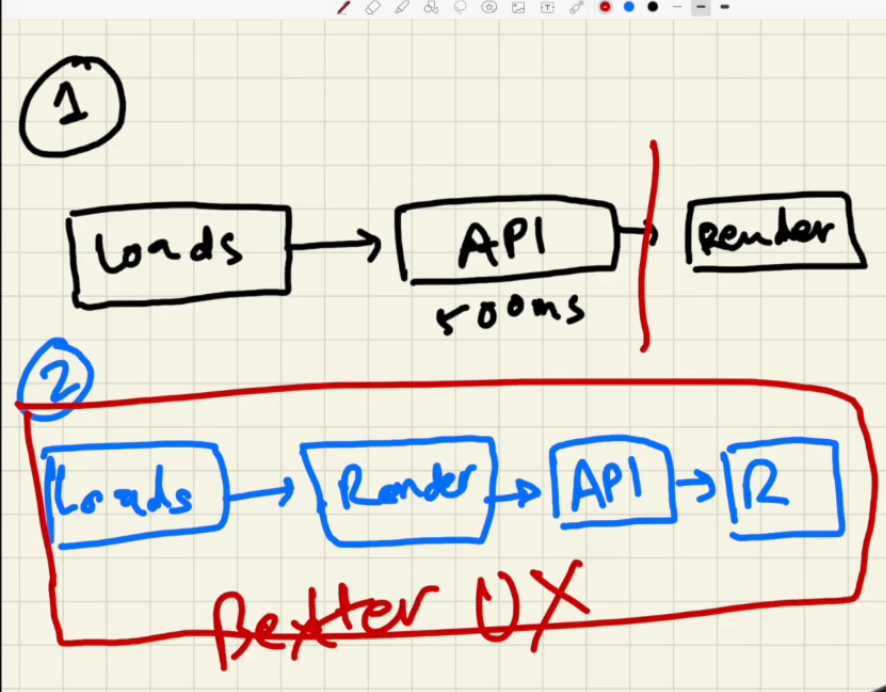 1
Loads API Render
500ms
2
Loads Render API R
Better UX